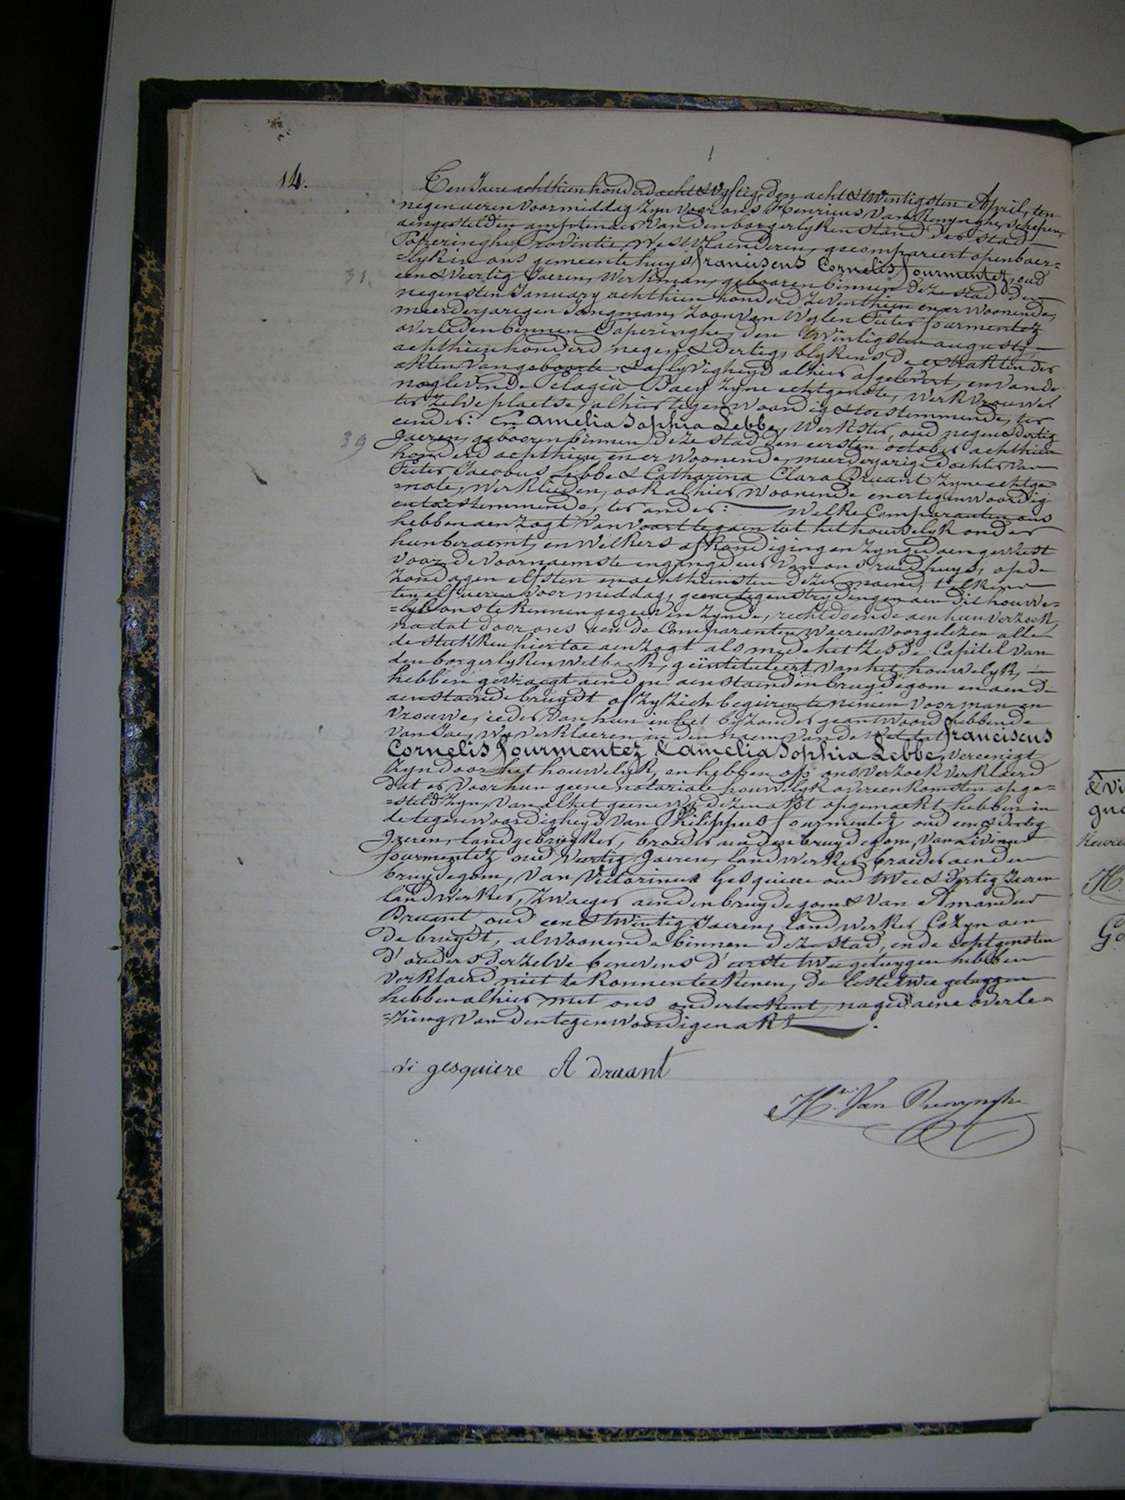 14.
Ten Jaere achthien honderd acht & vyftig, den acht & twintigsten April, ten
negen ueren voormiddag zyn voor ons Henricus Van Renynghe, schepen,
aengestelden amptenaer van den borgerlyken stand der stad
Poperinghe Provintie West Vlaenderen, gecompareert openbaer-
=lyk in ons gemeente huys franciscus Cornelis fourmentez, oud
31.
een & veertig Jaeren, Werkman, gebooren binnen deze stad den
negensten January achthien honderd zeventhien en er woonende,
meerderjarigen Jongman, zoon van Wylen Pieter fourmentez
overleden binnen Poperinghe, den twintigsten augusti
achthien honderd negen & dertig, blykens de extrakten der
akten van geboorte & aflyvigheyd alhier afgelevert, en van de
nog levende Pelagia Baey zyne echtgenote, Werkvrouwe
ter zelve plaetse, alhier tegenwoordig & toestemmende, ter
eender: En amelia Sophia Lebbe, Werkster, oud negen & dertig
39
Jaeren, gebooren binnen deze stad den eersten october achthien
honderd achthien, en er Woonende, meerderjarige dochter van
Pieter Jacobus Lebbe & Catharina Clara Druant zyne echtge=
note, Werklieden, ook alhier woonende en er tegenwoordig
en toestemmende, ter ander: Welke Comparanten ons
hebben aenzogt van voort te gaen tot het houwelyk onder
hun beraemt, en welkers afkondigingen zyn gedaen geweest
voor de voornaemste ingangdeur van ons raedhuys, op de
zondagen elfsten en achthiensten dezer maend, telkens
ten elf ueren voormiddag, geene tegenstrydingen aen dit houwe=
=lyk ons te kennen gegeven zynde, recht doende aen hun verzoek,
na dat door ons aen de Comparanten waeren voorgelezen alle
de stukken hiertoe aenzogt als mede het zesde Capitel van
den borgerlyken Wetboek, geïntituleert van het houwelyk,
hebben gevraegt aen den aenstaenden bruydegom en aen de
aenstaende bruydt of zy zich begeeren te nemen voor man en
vrouwe, ieder van hun in het byzonder geantwoord hebbende
van Jae, Wy verklaeren in den naem van de Wet dat franciscus
Cornelis fourmentez & amelia Sophia Lebbe, vereenigt
zyn door het houwelyk, en hebben op ons verzoek verklaerd
dat er voor hun geene notariale houwelyk overeenkomsten opge=
=steld zyn, van al het geene wy dezen akt opgemaekt hebben in
de tegenwoordigheyd van Philippus fourmentez, oud een & dertig
Jaeren, landgebruyker, broeder aen den bruydegom, van
fourmentez oud veertig Jaeren, landwerker, broeder aen den
bruydegom, van Victorinus Gesquiere oud twee & dertig Jaeren
landwerker, zwaeger aen den bruydegom & van Amandus
Druant, oud een & twintig Jaeren, landwerker, Cozyn aen
de bruydt, al woonende binnen deze stad, en de echtgenoten
d'ouders derzelve benevens d'eerste twee getuygen hebben
verklaerd niet te konnen teekenen, de leste twee getuygen
hebben alhier met ons onderteekent, na gedaene overle=
=zing van den tegenwoordigen akt.
Vi gesquiere A druant
H. Van Renynghe